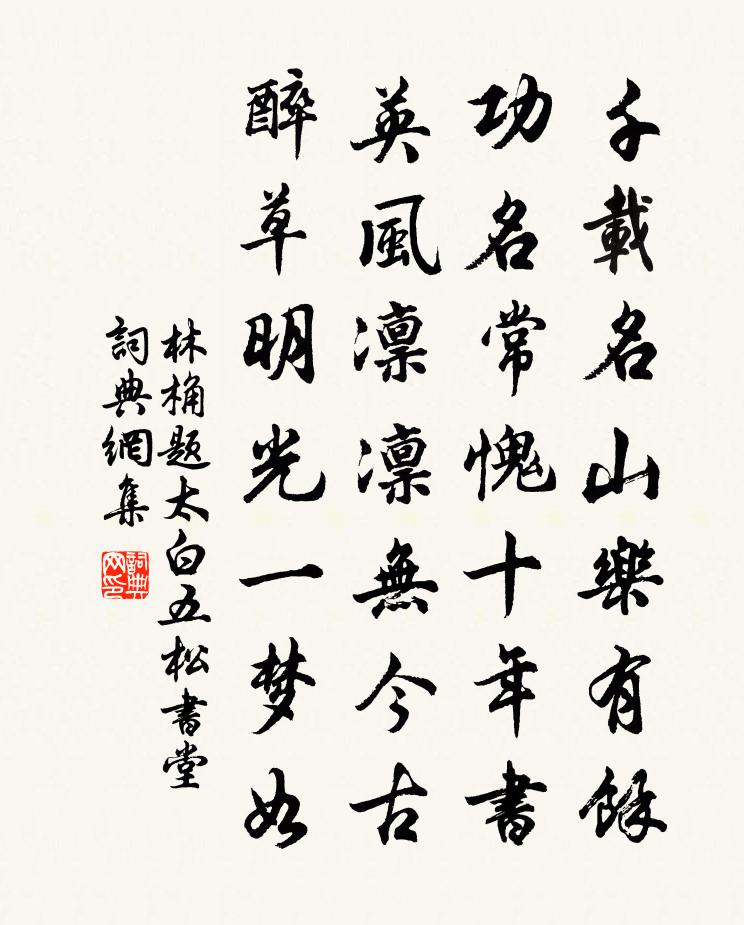 千載名山樂有餘
功名常愧十年書
英風凛凛無今古
醉草明光一梦如
林桷题太白五松書堂
詞典網集
詞典網印